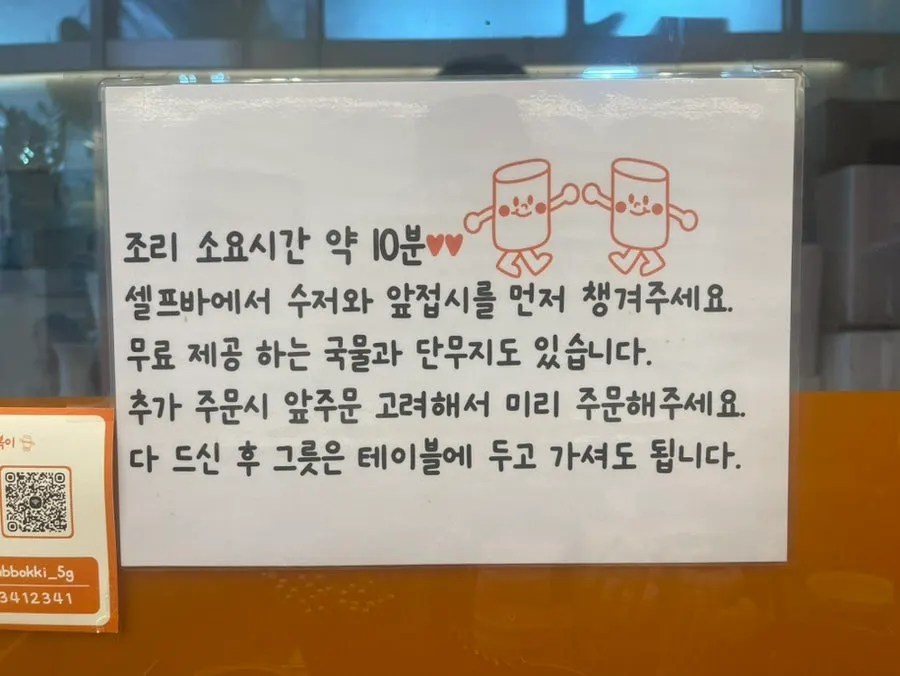 조리 소요시간 약 10분♥♥
셀프바에서 수저와 앞접시를 먼저 챙겨주세요.
무료 제공 하는 국물과 단무지도 있습니다.
추가 주문시 앞주문 고려해서 미리 주문해주세요.
다 드신 후 그릇은 테이블에 두고 가셔도 됩니다.
bbokki_5g
3412341